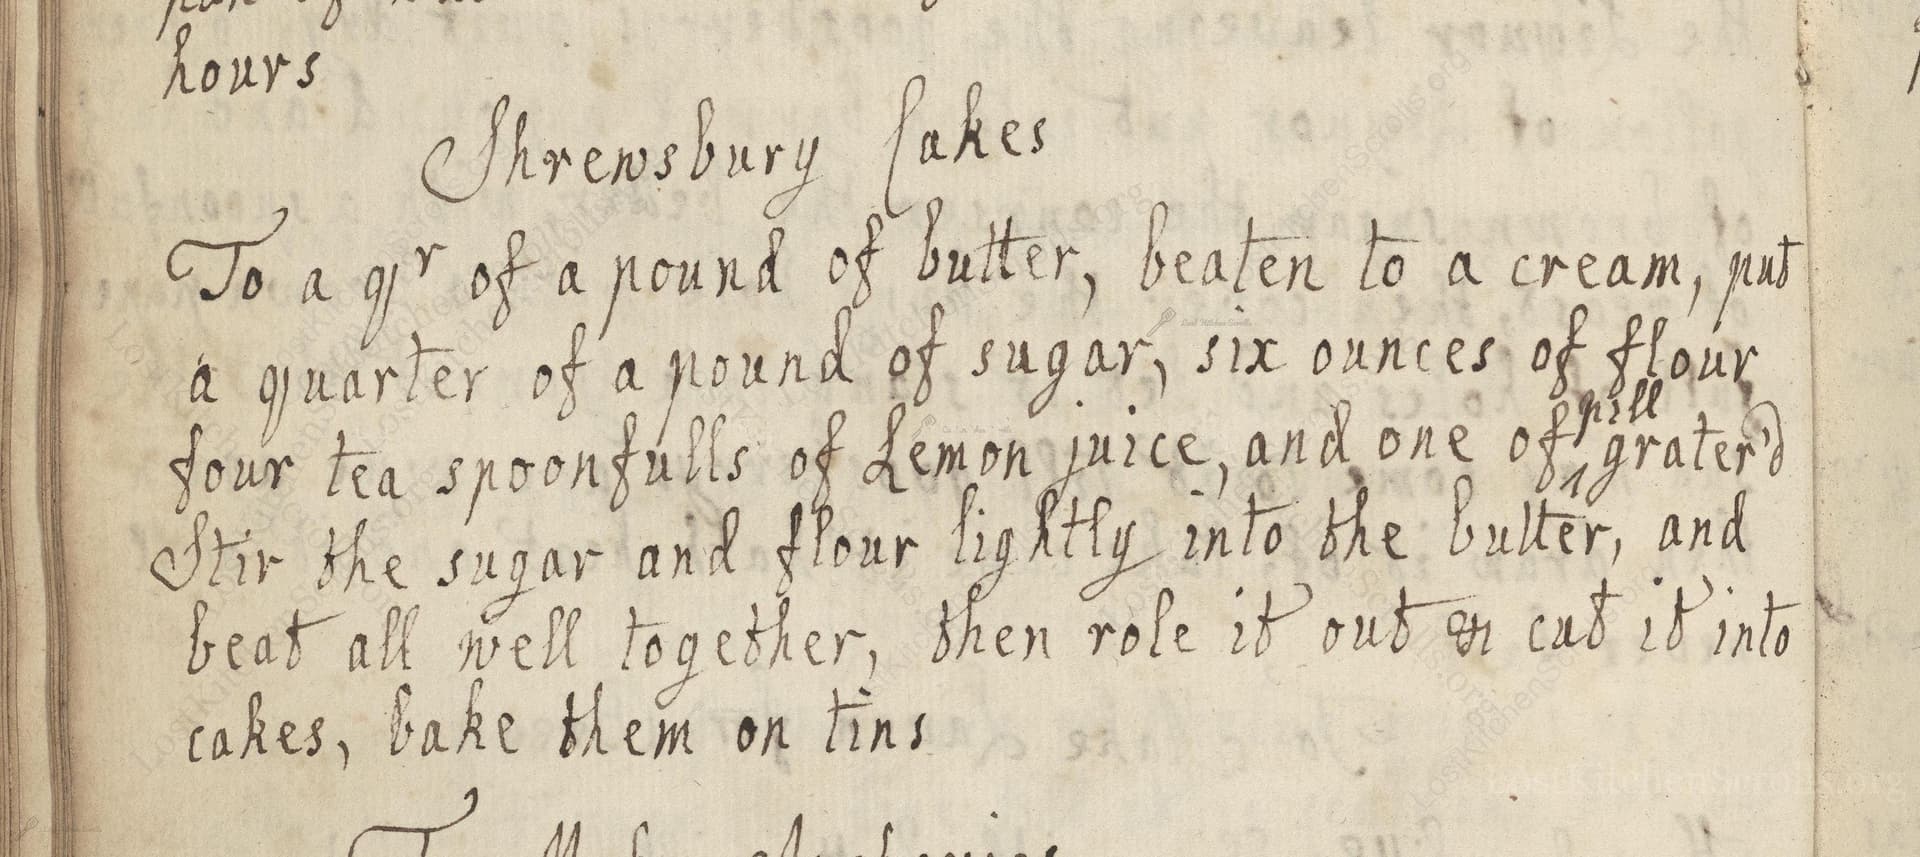 hours
Shrewsbury Cakes
To a qr of a pound of butter, beaten to a cream, put
a quarter of a pound of sugar, six ounces of flour
four tea spoonfulls of Lemon juice, and one of pill grater'd
Stir the sugar and flour lightly into the butter, and
beat all well together, then role it out & cut it into
cakes, bake them on tins
LostKitchenScrolls.org